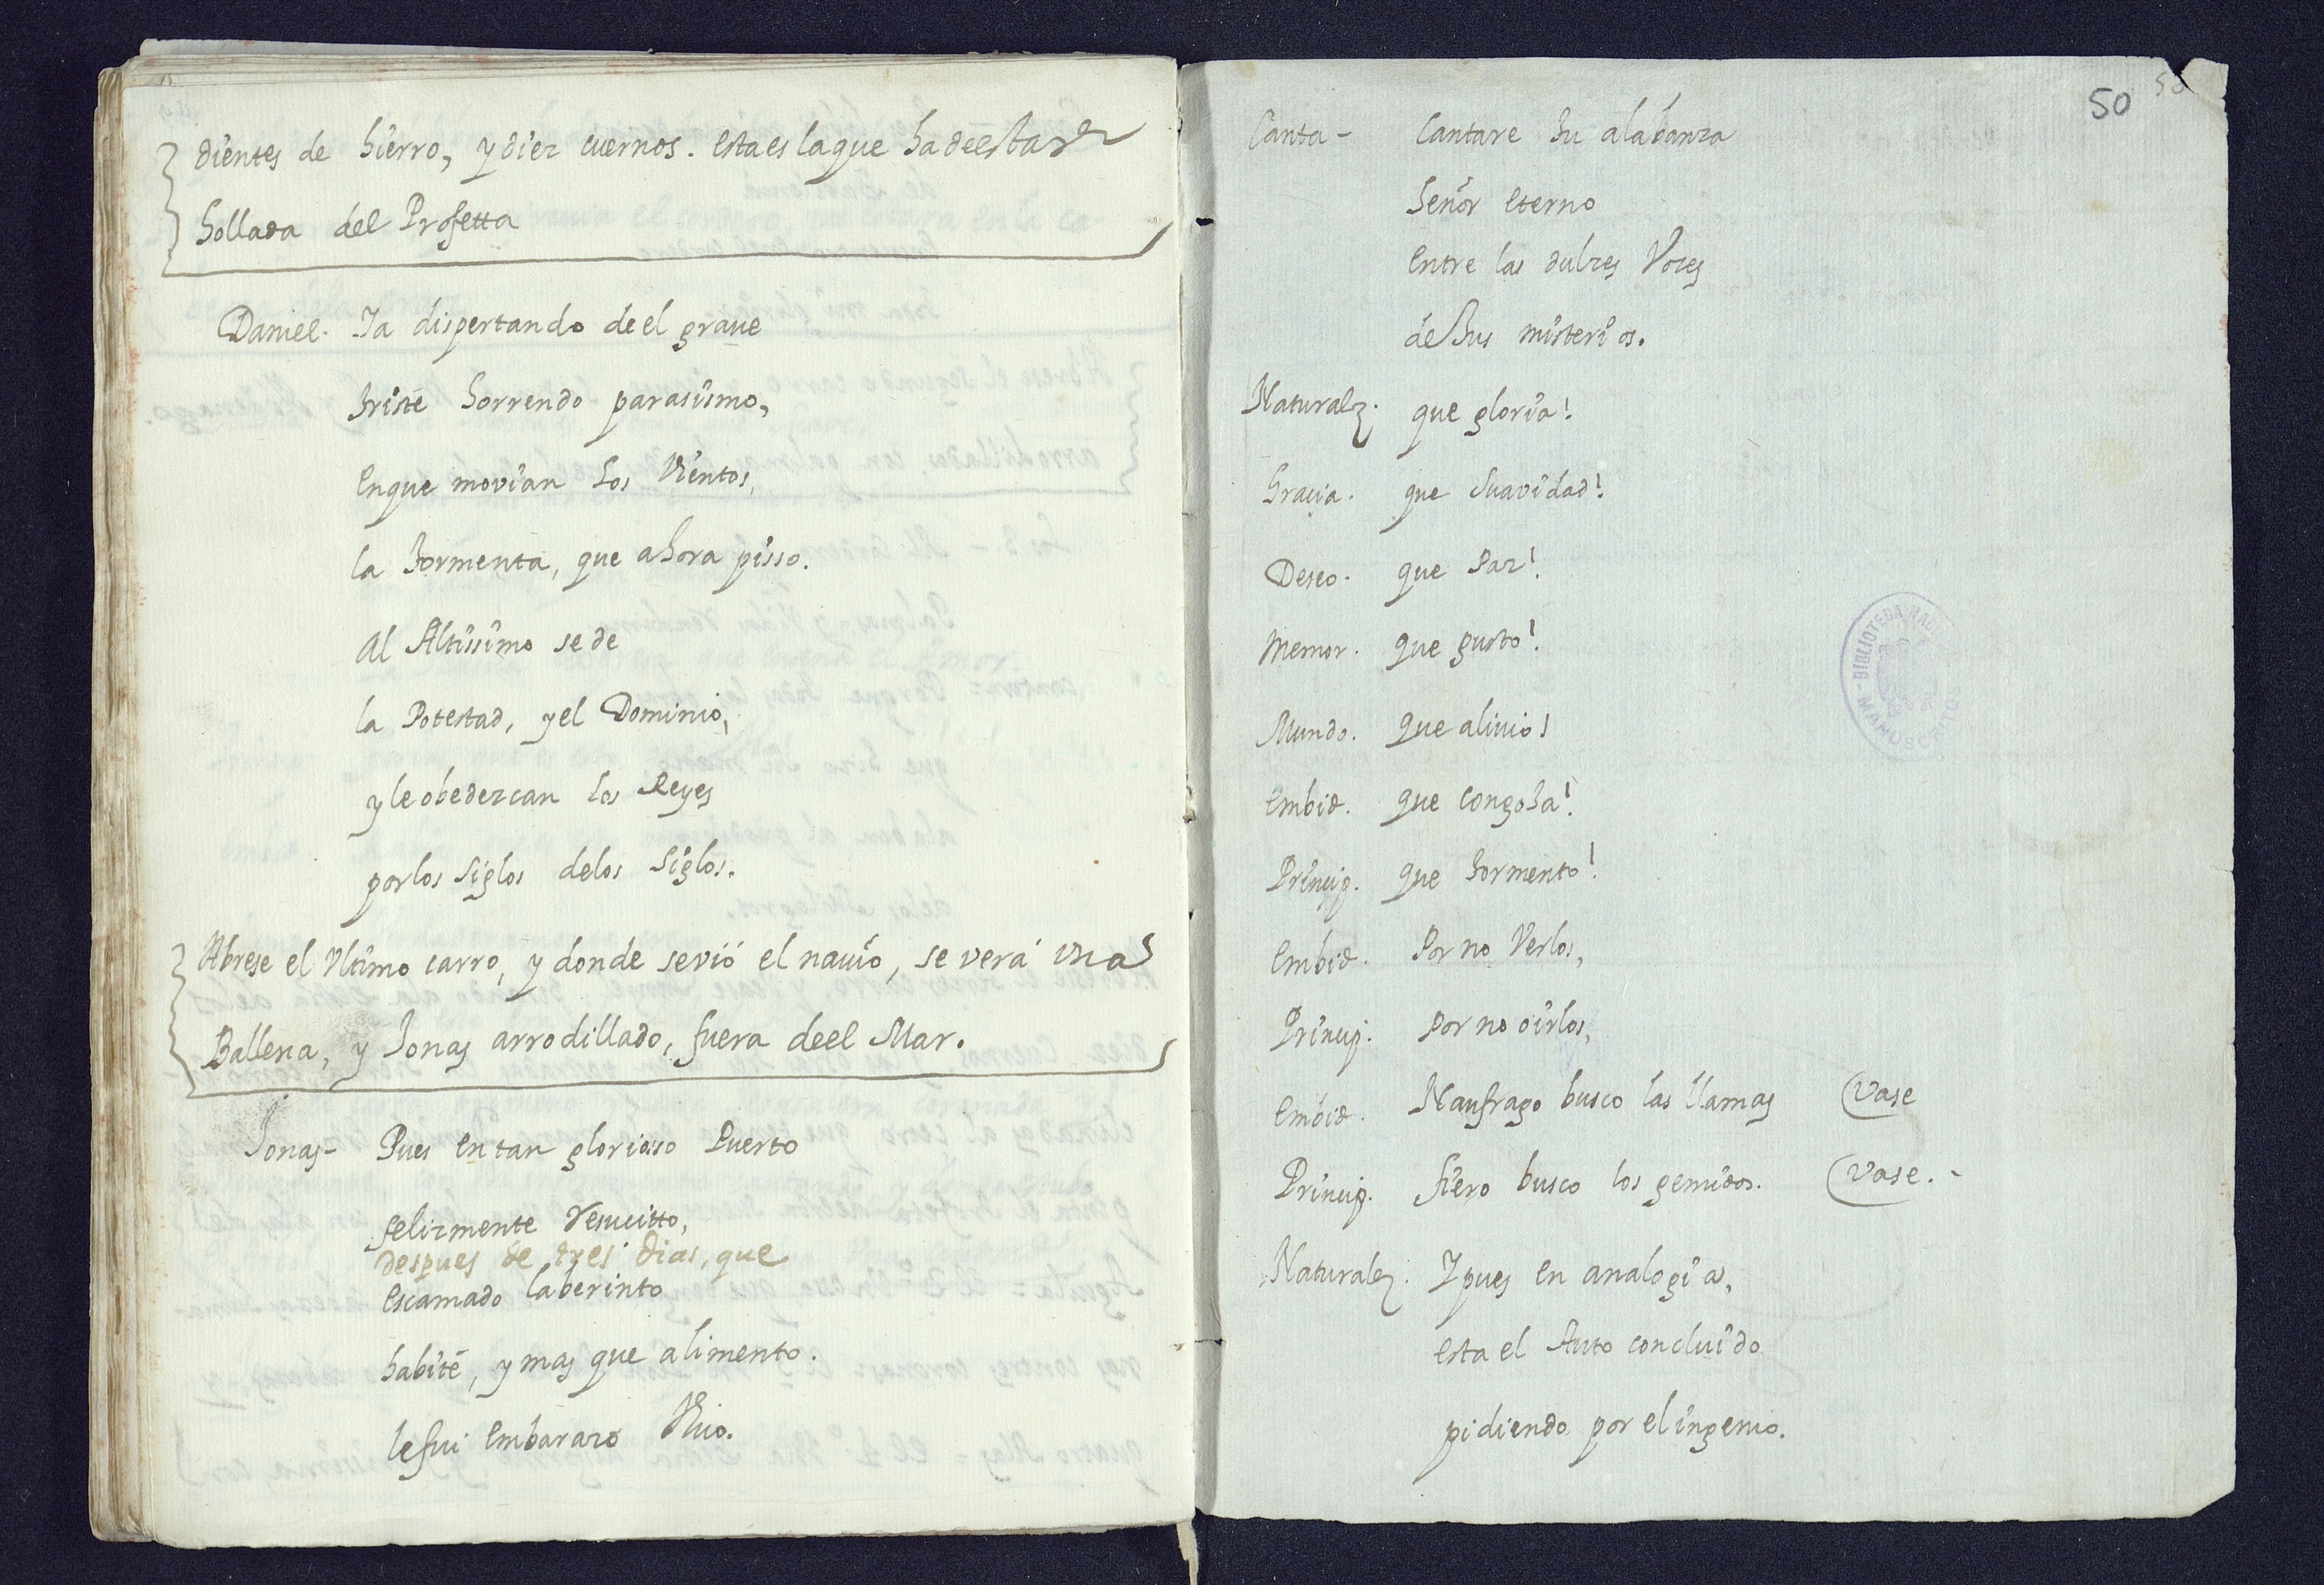 dientes de hierro, y diez cuernos. esta es la que ha de estar
hollada del Profetta
Daniel. Ya dispertando de el graue
triste horrendo parasismo,
en que movian los Vientos,
la tormenta, que ahora pisso.
al Altissimo se de
la Potestad, y el Dominio,
y le obedezcan los Reyes
por los siglos de los siglos.
Abrese el Vltimo carro, y donde se vió el nauío, se verá una
Ballena, y Jonas arrodillado, fuera de el Mar.
Jonas- Pues en tan glorioso Puerto
felizmente resucitto,
despues de tres dias, que
escamado laberinto
habité, y mas que alimento.
le fui embarazo Viuo.
50
Canta- Cantare tu alabanza
Señor eterno
entre las dulzes Vozes
de sus misterios.
Naturalz. que gloria!
Gracia. que suavidad!
Deseo. que Paz!
Memor. que gusto!
Mundo. que aliuio!
embid. que congoja!
Princip. que tormento!
embid. Por no Verlos,
Princip. Por no oirlos,
embid. Naufrago busco las llamas (Vase
Princip. fiero busco los gemidos. (Vase.-
Naturalz. Y pues en analogia,
esta el Auto concluido
pidiendo por el ingenio.
BIBLIOTECA NAC
MANUSCRITOS